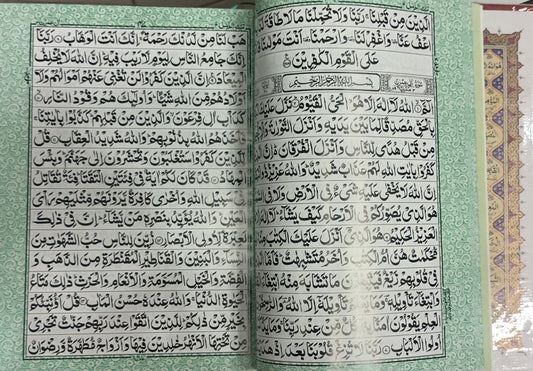 الَّذِيْنَ مِنْ قَبْلِنَا رَبَّنَا وَلَا تُحَمِّلْنَا مَا لَا طَاقَةَ لَنَا
اعْفُ عَنَّا وَاغْفِرْ لَنَا وَارْحَمْنَا اَنْتَ مَوْلٰىنَا
عَلَى الْقَوْمِ الْكٰفِرِيْنَ
بِسْمِ اللّٰهِ الرَّحْمٰنِ الرَّحِيْمِ
الٓمّٓ اللّٰهُ لَآ اِلٰهَ اِلَّا هُوَ الْحَىُّ الْقَيُّوْمُ نَزَّلَ عَلَيْكَ
بِالْحَقِّ مُصَدِّقًا لِّمَا بَيْنَ يَدَيْهِ وَاَنْزَلَ التَّوْرٰىةَ
مِنْ قَبْلُ هُدًى لِّلنَّاسِ وَاَنْزَلَ الْفُرْقَانَ اِنَّ
كَفَرُوْا بِاٰيٰتِ اللّٰهِ لَهُمْ عَذَابٌ شَدِيْدٌ وَاللّٰهُ عَزِيْزٌ
اِنَّ اللّٰهَ لَا يَخْفٰى عَلَيْهِ شَىْءٌ فِى الْاَرْضِ وَلَا فِى
هُوَ الَّذِىْ يُصَوِّرُكُمْ فِى الْاَرْحَامِ كَيْفَ يَشَآءُ لَآ اِلٰهَ
الْعَزِيْزُ الْحَكِيْمُ هُوَ الَّذِىْٓ اَنْزَلَ عَلَيْكَ الْكِتٰبَ
مُّحْكَمٰتٌ هُنَّ اُمُّ الْكِتٰبِ وَاُخَرُ مُتَشٰبِهٰتٌ فَاَمَّا
فِىْ قُلُوْبِهِمْ زَيْغٌ فَيَتَّبِعُوْنَ مَا تَشَابَهَ مِنْهُ ابْتِغَآءَ
وَابْتِغَآءَ تَاْوِيْلِهٖ وَمَا يَعْلَمُ تَاْوِيْلَهٗٓ اِلَّا اللّٰهُ
الْعِلْمِ يَقُوْلُوْنَ اٰمَنَّا بِهٖ كُلٌّ مِّنْ عِنْدِ رَبِّنَا وَمَا
اُولُوا الْاَلْبَابِ رَبَّنَا لَا تُزِغْ قُلُوْبَنَا بَعْدَ اِذْ
هَبْ لَنَا مِنْ لَّدُنْكَ رَحْمَةً اِنَّكَ اَنْتَ الْوَهَّابُ رَبَّنَآ
اِنَّكَ جَامِعُ النَّاسِ لِيَوْمٍ لَّا رَيْبَ فِيْهِ اِنَّ اللّٰهَ لَا يُخْلِفُ
الْمِيْعَادَ اِنَّ الَّذِيْنَ كَفَرُوْا لَنْ تُغْنِىَ عَنْهُمْ اَمْوَالُهُمْ
وَلَآ اَوْلَادُهُمْ مِّنَ اللّٰهِ شَيْئًا وَاُولٰٓئِكَ هُمْ وَقُوْدُ النَّارِ
كَدَاْبِ اٰلِ فِرْعَوْنَ وَالَّذِيْنَ مِنْ قَبْلِهِمْ كَذَّبُوْا بِاٰيٰتِنَا
فَاَخَذَهُمُ اللّٰهُ بِذُنُوْبِهِمْ وَاللّٰهُ شَدِيْدُ الْعِقَابِ قُلْ
لِّلَّذِيْنَ كَفَرُوْا سَتُغْلَبُوْنَ وَتُحْشَرُوْنَ اِلٰى جَهَنَّمَ وَبِئْسَ
الْمِهَادُ قَدْ كَانَ لَكُمْ اٰيَةٌ فِىْ فِئَتَيْنِ الْتَقَتَا فِئَةٌ تُقَاتِلُ
فِىْ سَبِيْلِ اللّٰهِ وَاُخْرٰى كَافِرَةٌ يَّرَوْنَهُمْ مِّثْلَيْهِمْ رَاْىَ
الْعَيْنِ وَاللّٰهُ يُؤَيِّدُ بِنَصْرِهٖ مَنْ يَّشَآءُ اِنَّ فِىْ ذٰلِكَ
لَعِبْرَةً لِّاُولِى الْاَبْصَارِ زُيِّنَ لِلنَّاسِ حُبُّ الشَّهَوٰتِ مِنَ
النِّسَآءِ وَالْبَنِيْنَ وَالْقَنَاطِيْرِ الْمُقَنْطَرَةِ مِنَ الذَّهَبِ وَ
الْفِضَّةِ وَالْخَيْلِ الْمُسَوَّمَةِ وَالْاَنْعَامِ وَالْحَرْثِ ذٰلِكَ مَتَاعُ
الْحَيٰوةِ الدُّنْيَا وَاللّٰهُ عِنْدَهٗ حُسْنُ الْمَاٰبِ قُلْ اَؤُنَبِّئُكُمْ
بِخَيْرٍ مِّنْ ذٰلِكُمْ لِلَّذِيْنَ اتَّقَوْا عِنْدَ رَبِّهِمْ جَنّٰتٌ تَجْرِىْ
مِنْ تَحْتِهَا الْاَنْهٰرُ خٰلِدِيْنَ فِيْهَا وَاَزْوَاجٌ مُّطَهَّرَةٌ وَّرِضْوَانٌ